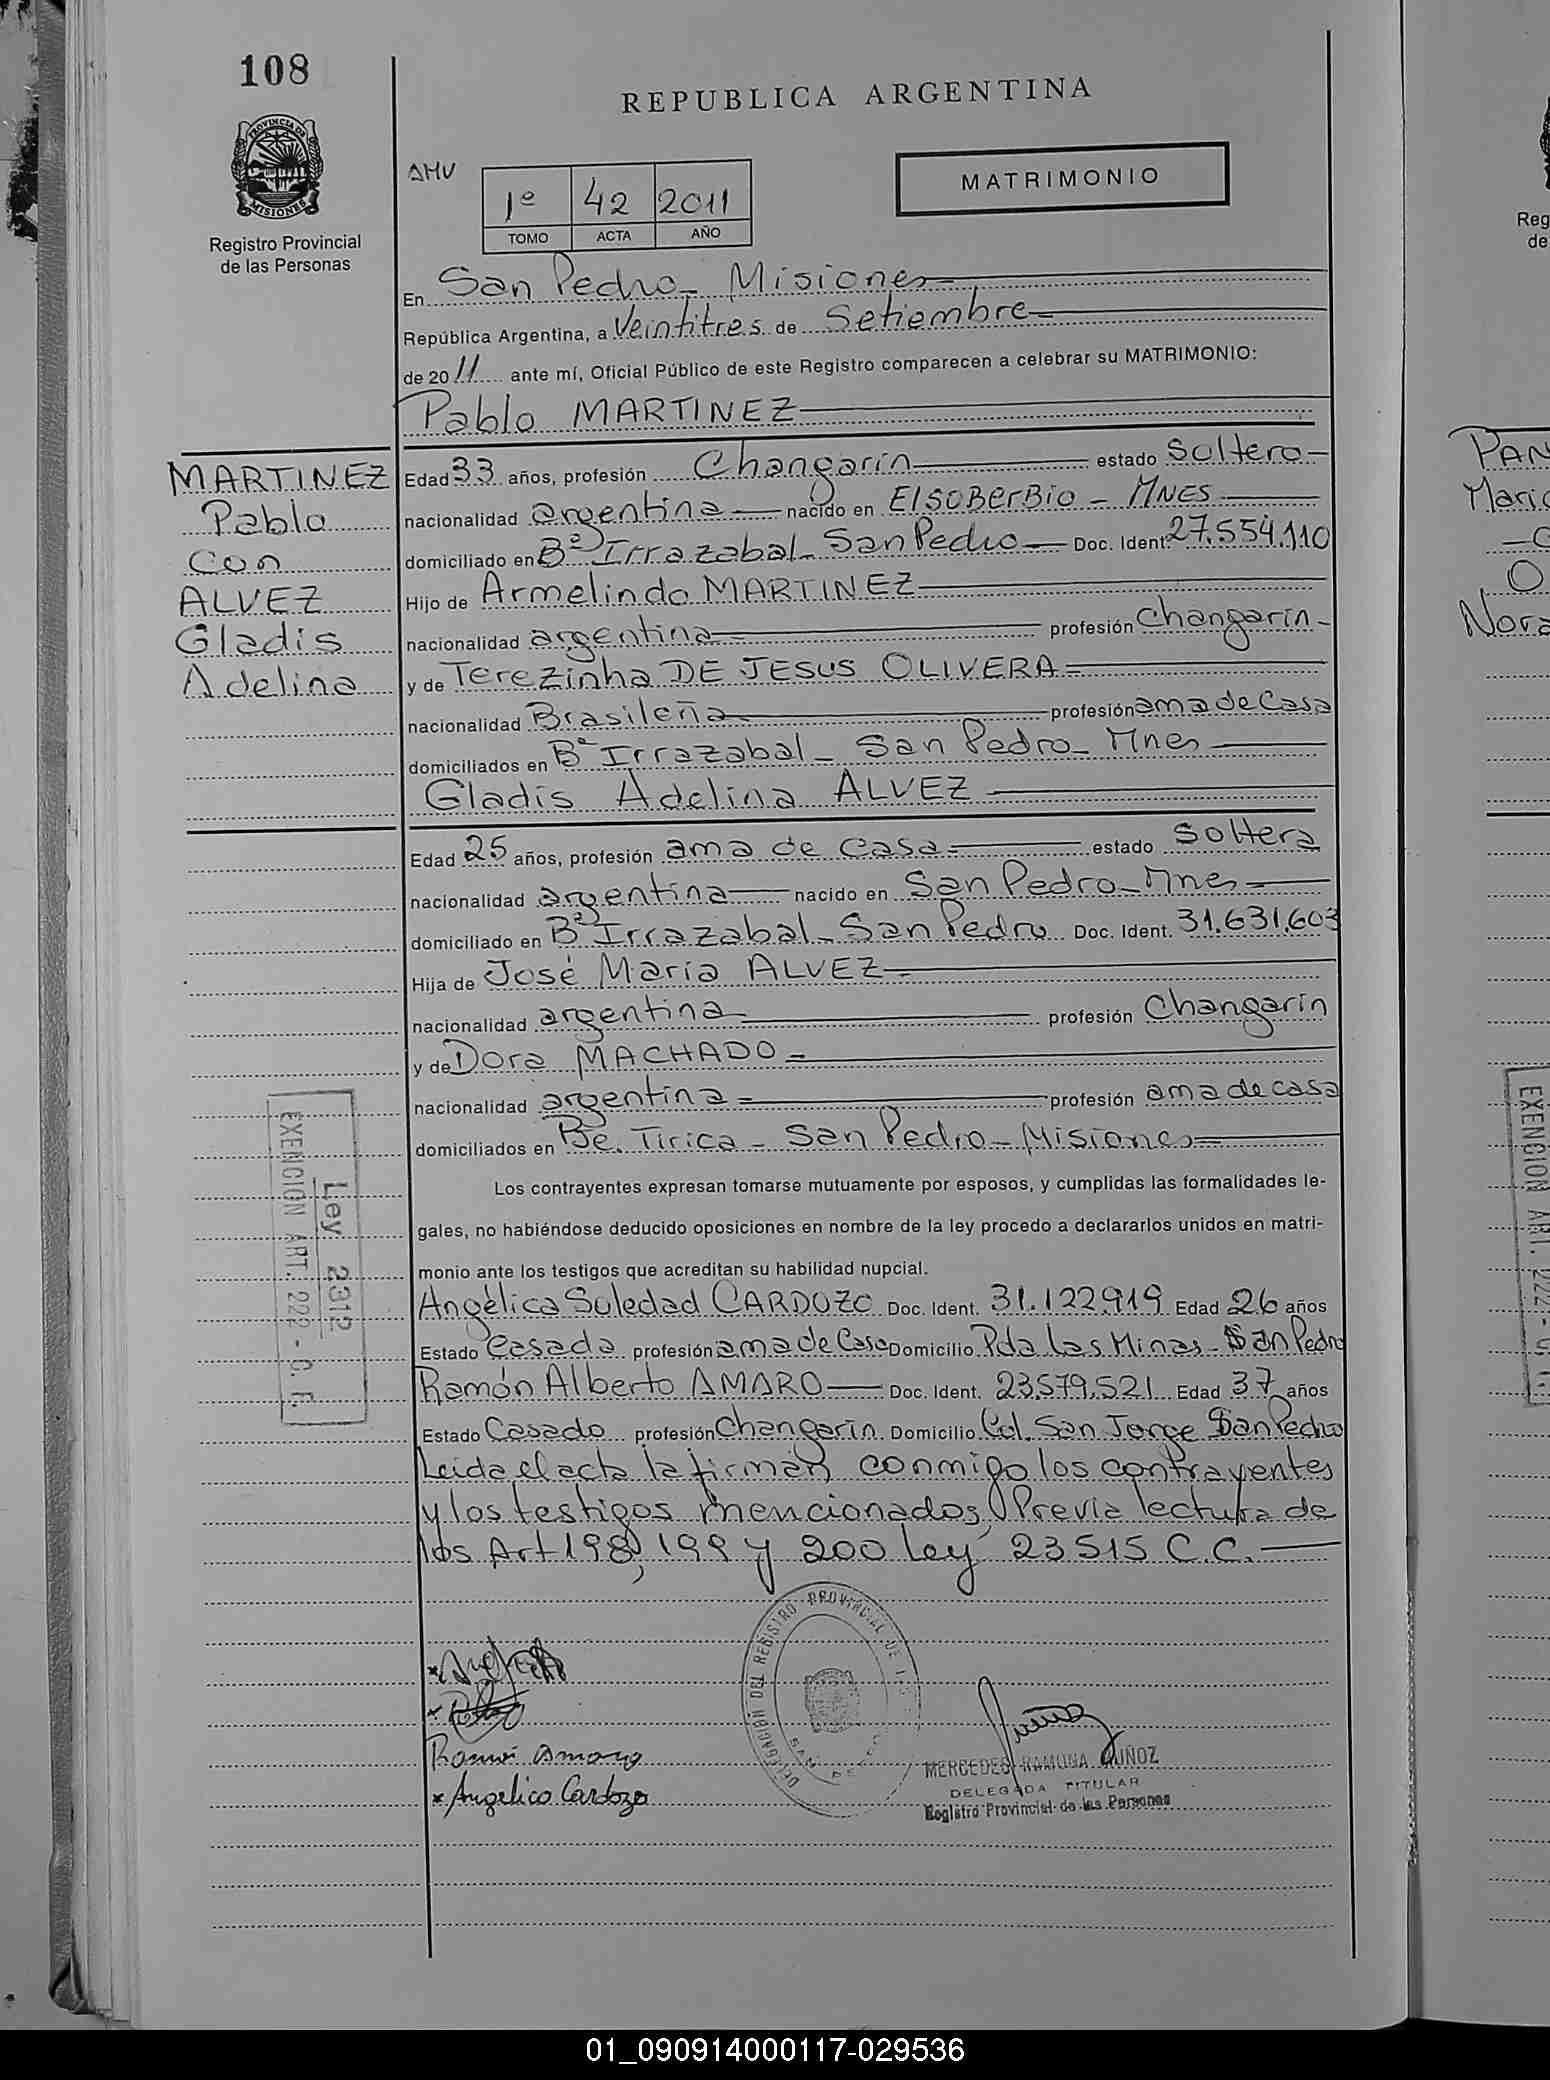 108
REPUBLICA ARGENTINA
PROVINCIA DE
MISIONES
Registro Provincial
de las Personas
AMV
1º 42 2011
TOMO ACTA AÑO
MATRIMONIO
En San Pedro - Misiones
República Argentina, a Veintitres de Setiembre
de 2011 ante mí, Oficial Público de este Registro comparecen a celebrar su MATRIMONIO:
Pablo MARTINEZ
MARTINEZ
Pablo
Con
ALVEZ
Gladis
Adelina
Edad 33 años, profesión Changarín estado Soltero
nacionalidad argentina nacido en El SOBERBIO - MNES
domiciliado en Bº Irrazabal - San Pedro Doc. Ident. 27.554.110
Hijo de Armelindo MARTINEZ
nacionalidad argentina profesión Changarín
y de Terezinha DE JESUS OLIVERA
nacionalidad Brasileña profesión ama de Casa
domiciliados en Bº Irrazabal - San Pedro - Mnes
Gladis Adelina ALVEZ
Edad 25 años, profesión ama de casa estado Soltera
nacionalidad argentina nacido en San Pedro - Mnes
domiciliado en Bº Irrazabal - San Pedro Doc. Ident. 31.631.603
Hija de José María ALVEZ
nacionalidad argentina profesión Changarín
y de Dora MACHADO
nacionalidad argentina profesión ama de casa
domiciliados en Pje. Tirica - San Pedro - Misiones
Los contrayentes expresan tomarse mutuamente por esposos, y cumplidas las formalidades le-
gales, no habiéndose deducido oposiciones en nombre de la ley procedo a declararlos unidos en matri-
monio ante los testigos que acreditan su habilidad nupcial.
Angélica Soledad CARDOZO Doc. Ident. 31.122.919 Edad 26 años
Estado Casada profesión ama de Casa Domicilio Pda las Minas - San Pedro
Ramón Alberto AMARO Doc. Ident. 23.579.521 Edad 37 años
Estado Casado profesión Changarín Domicilio Col. San Jorge San Pedro
Leida el acta la firman conmigo los contrayentes
y los testigos mencionados, Previa lectura de
los Art 198, 199 y 200 ley 23515 C.C.
Ley 2312
EXENCION ART. 222 - C. F.
DELEGACIÓN DEL REGISTRO PROVINCIAL DE LAS
SAN PEDRO
Angelica Cardozo
MERCEDES RAMONA MUÑOZ
DELEGADA TITULAR
Registro Provincial de las Personas
Reg
de
PAN
Mari
O
Nora
EXENCION ART. 222 - C. F.
01_090914000117-029536